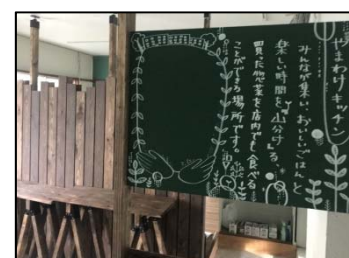 やまわけキッチン
みんなが集い、おいしいごはんと
楽しい時間を"山分け"する、
買った惣菜を店内でも食べる
ことができる場所です。